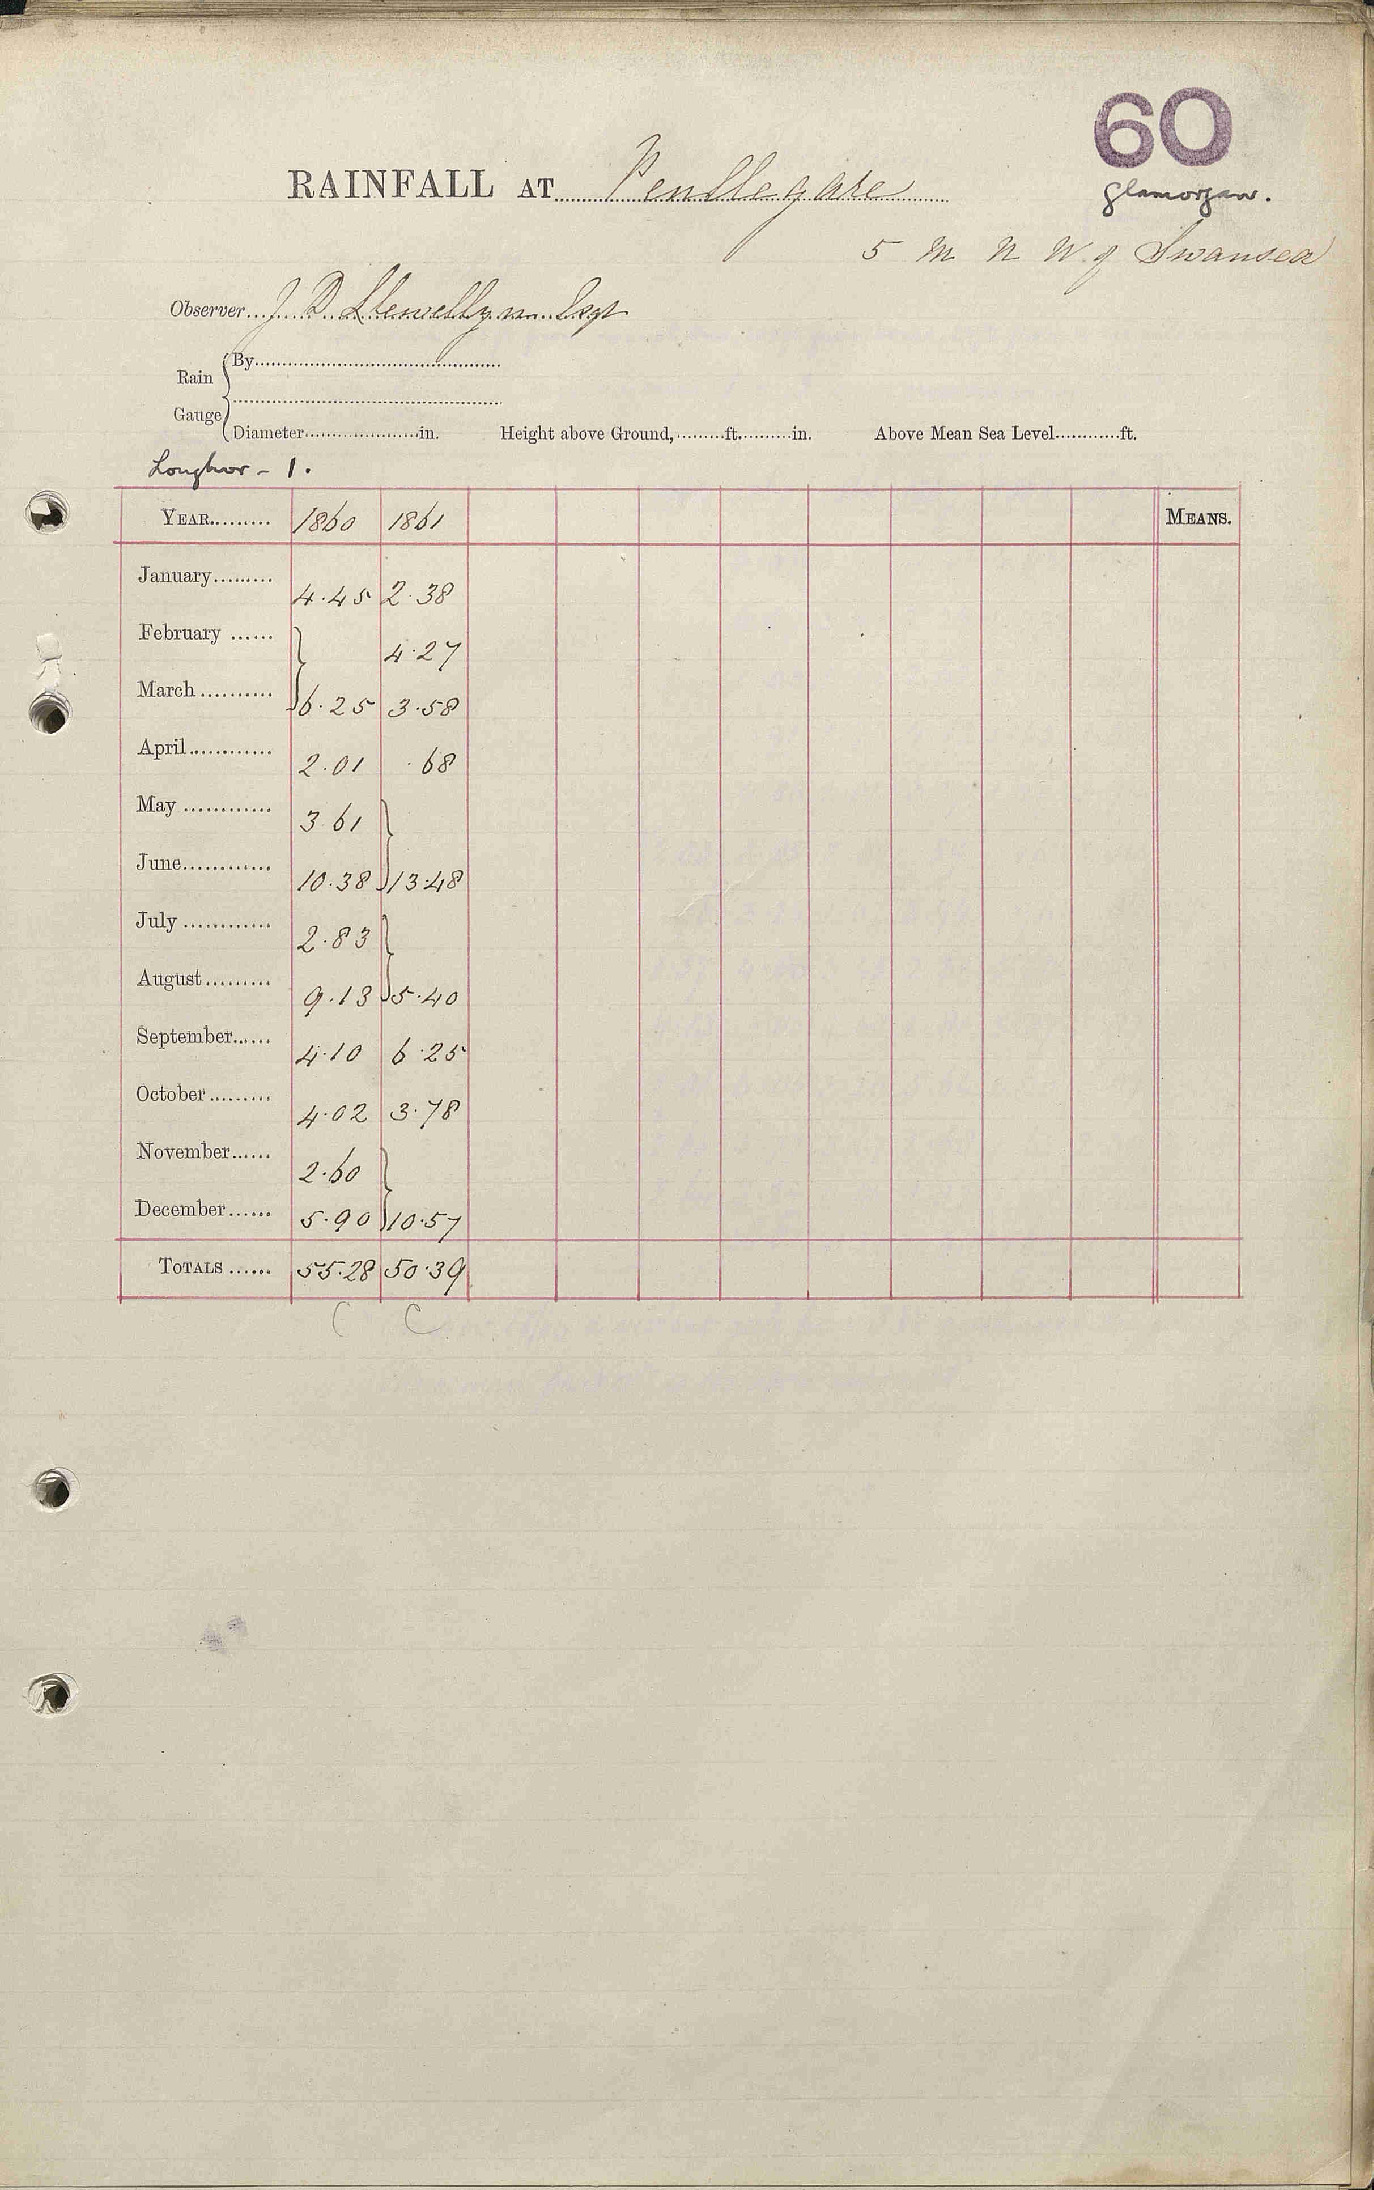 60
Glamorgan.
RAINFALL AT Penllegare
5 m N N W of Swansea
Observer J D Llewellyn Esqr
Rain Gauge
By
Diameter in. Height above Ground, ft. in. Above Mean Sea Level ft.
Loughor - 1.
YEAR 1860 1861 MEANS.
January 4.45 2.38
February 4.27
March 6.25 3.58
April 2.01 .68
May 3.61
June 10.38 13.48
July 2.83
August 9.13 5.40
September 4.10 6.25
October 4.02 3.78
November 2.60
December 5.90 10.57
TOTALS 55.28 50.39
C C